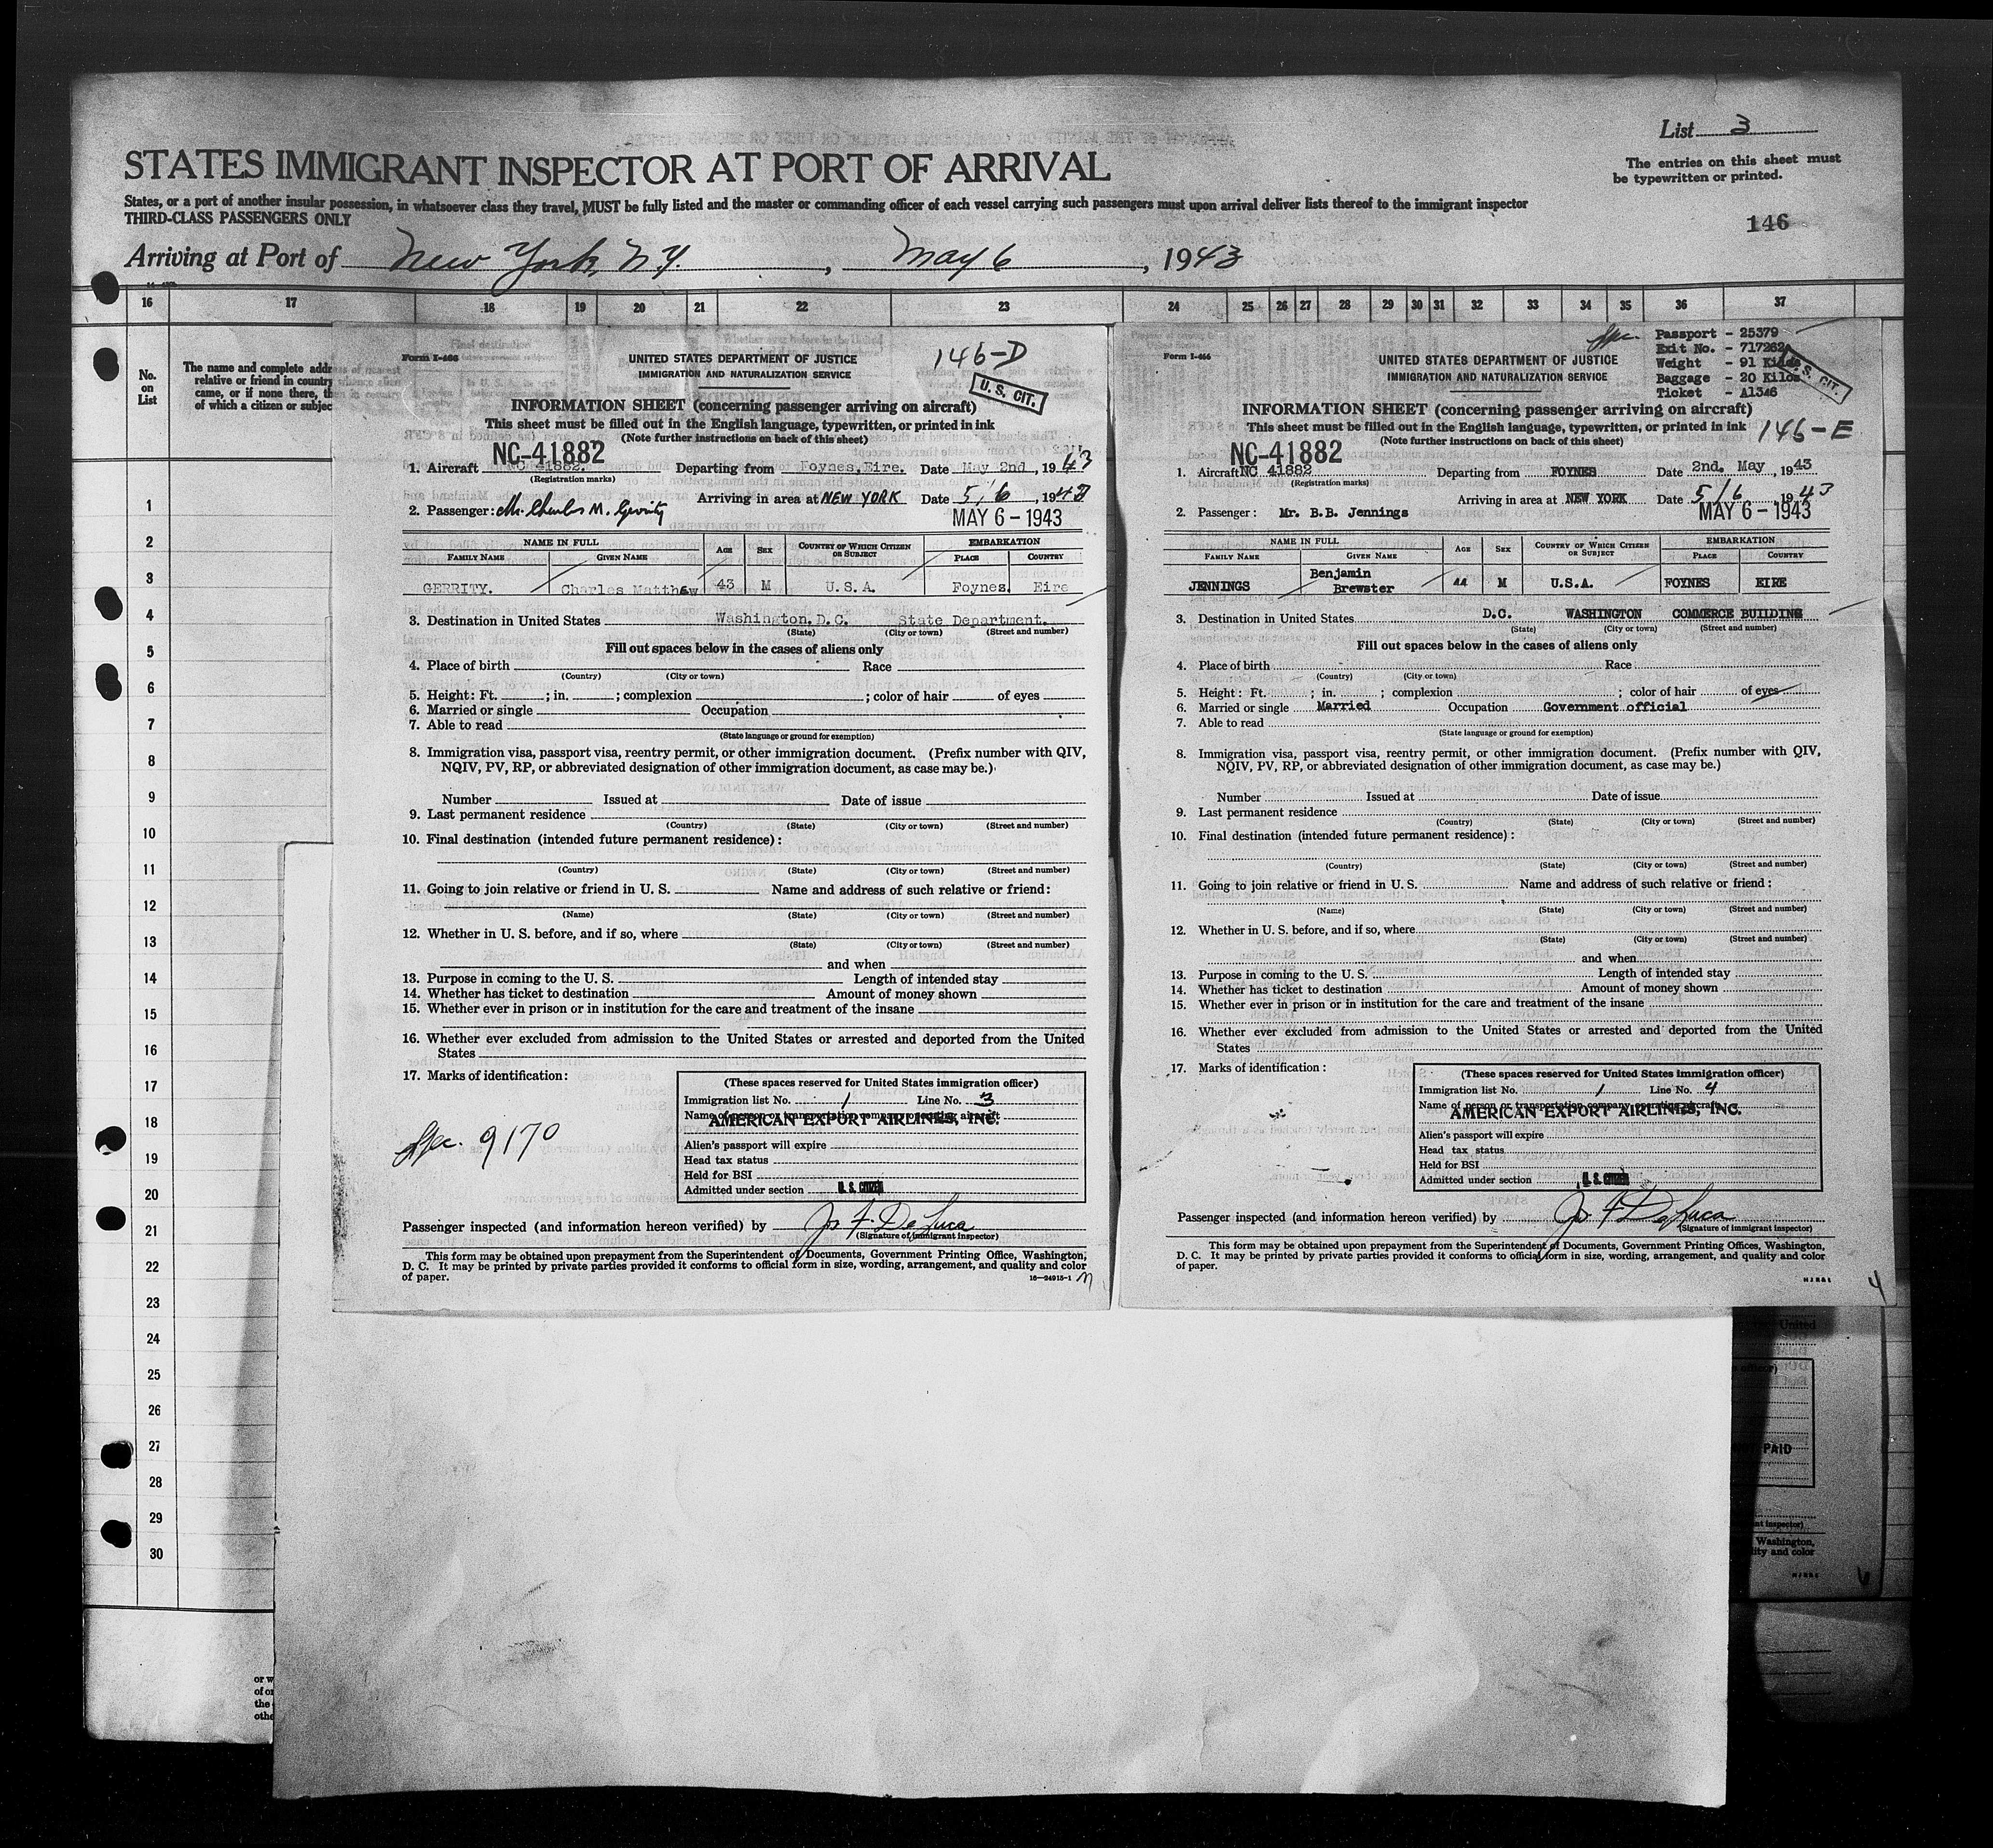 List 3
The entries on this sheet must
be typewritten or printed.
STATES IMMIGRANT INSPECTOR AT PORT OF ARRIVAL
States, or a port of another insular possession, in whatsoever class they travel, MUST be fully listed and the master or commanding officer of each vessel carrying such passengers must upon arrival deliver lists thereof to the immigrant inspector
THIRD-CLASS PASSENGERS ONLY
146
Arriving at Port of New York, N.Y. , May 6 , 1943
16 17 18 19 20 21 22 23 24 25 26 27 28 29 30 31 32 33 34 35 36 37
No.
on
List
The name and complete addr
relative or friend in country
came, or if none there, th
of which a citizen or subjec
1
2
3
4
5
6
7
8
9
10
11
12
13
14
15
16
17
18
19
20
21
22
23
24
25
26
27
28
29
30
or w
of or
the
othe
Form I-466
146-D
UNITED STATES DEPARTMENT OF JUSTICE
IMMIGRATION AND NATURALIZATION SERVICE
U. S. CIT.
INFORMATION SHEET (concerning passenger arriving on aircraft)
This sheet must be filled out in the English language, typewritten, or printed in ink
(Note further instructions on back of this sheet)
NC-41882
1. Aircraft NC 41882. Departing from Foynes, Eire. Date May 2nd , 1943
(Registration marks)
Arriving in area at NEW YORK Date 5/6 , 1943
2. Passenger: Mr. Charles M. Gerrity
MAY 6 - 1943
NAME IN FULL AGE SEX COUNTRY OF WHICH CITIZEN OR SUBJECT EMBARKATION
FAMILY NAME GIVEN NAME PLACE COUNTRY
GERRITY. Charles Matthew 43 M U.S.A. Foynes. Eire
3. Destination in United States Washington. D.C. State Department.
(State) (City or town) (Street and number)
Fill out spaces below in the cases of aliens only
4. Place of birth Race
(Country) (City or town)
5. Height: Ft. ; in. ; complexion ; color of hair of eyes
6. Married or single Occupation
7. Able to read
(State language or ground for exemption)
8. Immigration visa, passport visa, reentry permit, or other immigration document. (Prefix number with QIV,
NQIV, PV, RP, or abbreviated designation of other immigration document, as case may be.)
Number Issued at Date of issue
9. Last permanent residence
(Country) (State) (City or town) (Street and number)
10. Final destination (intended future permanent residence):
(Country) (State) (City or town) (Street and number)
11. Going to join relative or friend in U. S. Name and address of such relative or friend:
(Name) (State) (City or town) (Street and number)
12. Whether in U. S. before, and if so, where
(State) (City or town) (Street and number)
and when
13. Purpose in coming to the U. S. Length of intended stay
14. Whether has ticket to destination Amount of money shown
15. Whether ever in prison or in institution for the care and treatment of the insane
16. Whether ever excluded from admission to the United States or arrested and deported from the United
States
17. Marks of identification:
(These spaces reserved for United States immigration officer)
Immigration list No. 1 Line No. 3
Name of person or transportation company operating aircraft
AMERICAN EXPORT AIRLINES, INC.
Alien's passport will expire
Head tax status
Held for BSI
Admitted under section U. S. CITIZEN
9170
Passenger inspected (and information hereon verified) by Jos F. DeLuca
(Signature of immigrant inspector)
This form may be obtained upon prepayment from the Superintendent of Documents, Government Printing Office, Washington,
D. C. It may be printed by private parties provided it conforms to official form in size, wording, arrangement, and quality and color
of paper.
16—24915-1
Form I-466
Passport - 25379
Exit No. - 717262
Weight - 91 Kilos
Baggage - 20 Kilos
Ticket - A1346
U. S. CIT.
UNITED STATES DEPARTMENT OF JUSTICE
IMMIGRATION AND NATURALIZATION SERVICE
INFORMATION SHEET (concerning passenger arriving on aircraft)
This sheet must be filled out in the English language, typewritten, or printed in ink 146-E
(Note further instructions on back of this sheet)
NC-41882
1. Aircraft NC 41882 Departing from FOYNES Date 2nd. May , 1943
(Registration marks)
Arriving in area at NEW YORK Date 5/6 , 1943
2. Passenger: Mr. B.B. Jennings
MAY 6 - 1943
NAME IN FULL AGE SEX COUNTRY OF WHICH CITIZEN OR SUBJECT EMBARKATION
FAMILY NAME GIVEN NAME PLACE COUNTRY
JENNINGS Benjamin Brewster 44 M U.S.A. FOYNES EIRE
3. Destination in United States D.C. WASHINGTON COMMERCE BUILDING
(State) (City or town) (Street and number)
Fill out spaces below in the cases of aliens only
4. Place of birth Race
(Country) (City or town)
5. Height: Ft. ; in. ; complexion ; color of hair of eyes
6. Married or single Married Occupation Government official
7. Able to read
(State language or ground for exemption)
8. Immigration visa, passport visa, reentry permit, or other immigration document. (Prefix number with QIV,
NQIV, PV, RP, or abbreviated designation of other immigration document, as case may be.)
Number Issued at Date of issue
9. Last permanent residence
(Country) (State) (City or town) (Street and number)
10. Final destination (intended future permanent residence):
(Country) (State) (City or town) (Street and number)
11. Going to join relative or friend in U. S. Name and address of such relative or friend:
(Name) (State) (City or town) (Street and number)
12. Whether in U. S. before, and if so, where
(State) (City or town) (Street and number)
and when
13. Purpose in coming to the U. S. Length of intended stay
14. Whether has ticket to destination Amount of money shown
15. Whether ever in prison or in institution for the care and treatment of the insane
16. Whether ever excluded from admission to the United States or arrested and deported from the United
States
17. Marks of identification:
(These spaces reserved for United States immigration officer)
Immigration list No. 1 Line No. 4
Name of person or transportation company operating aircraft
AMERICAN EXPORT AIRLINES, INC.
Alien's passport will expire
Head tax status
Held for BSI
Admitted under section U. S. CITIZEN
Passenger inspected (and information hereon verified) by Jos F DeLuca
(Signature of immigrant inspector)
This form may be obtained upon prepayment from the Superintendent of Documents, Government Printing Offices, Washington,
D. C. It may be printed by private parties provided it conforms to official form in size, wording, arrangement, and quality and color
of paper.
4
United
officer)
PAID
inspector)
Washington,
lity and color